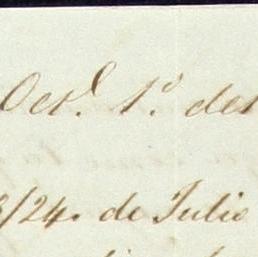 Oct.e 1.º del
/24. de Julio